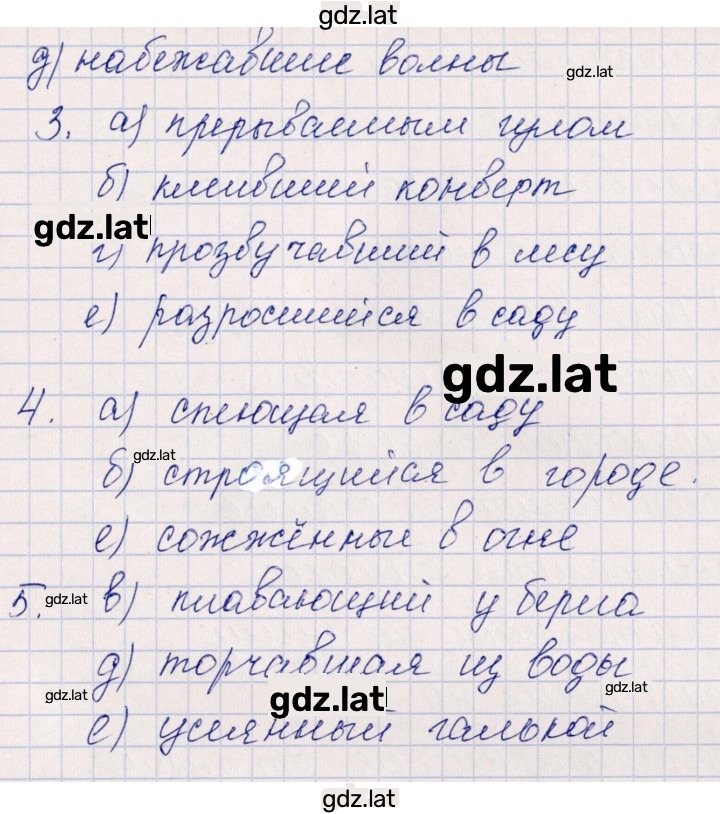 gdz.lat
д) набежавшие волны
gdz.lat
3. а) прерываемым гулом
б) клеивший конверт
gdz.lat
г) прозвучавший в лесу
е) разросшийся в саду
gdz.lat
4. а) спеющая в саду
gdz.lat
б) строящийся в городе.
е) сожжённые в огне
5. gdz.lat в) плавающий у берега
д) торчавшая из воды
gdz.lat gdz.lat gdz.lat
е) усеянный галькой
gdz.lat